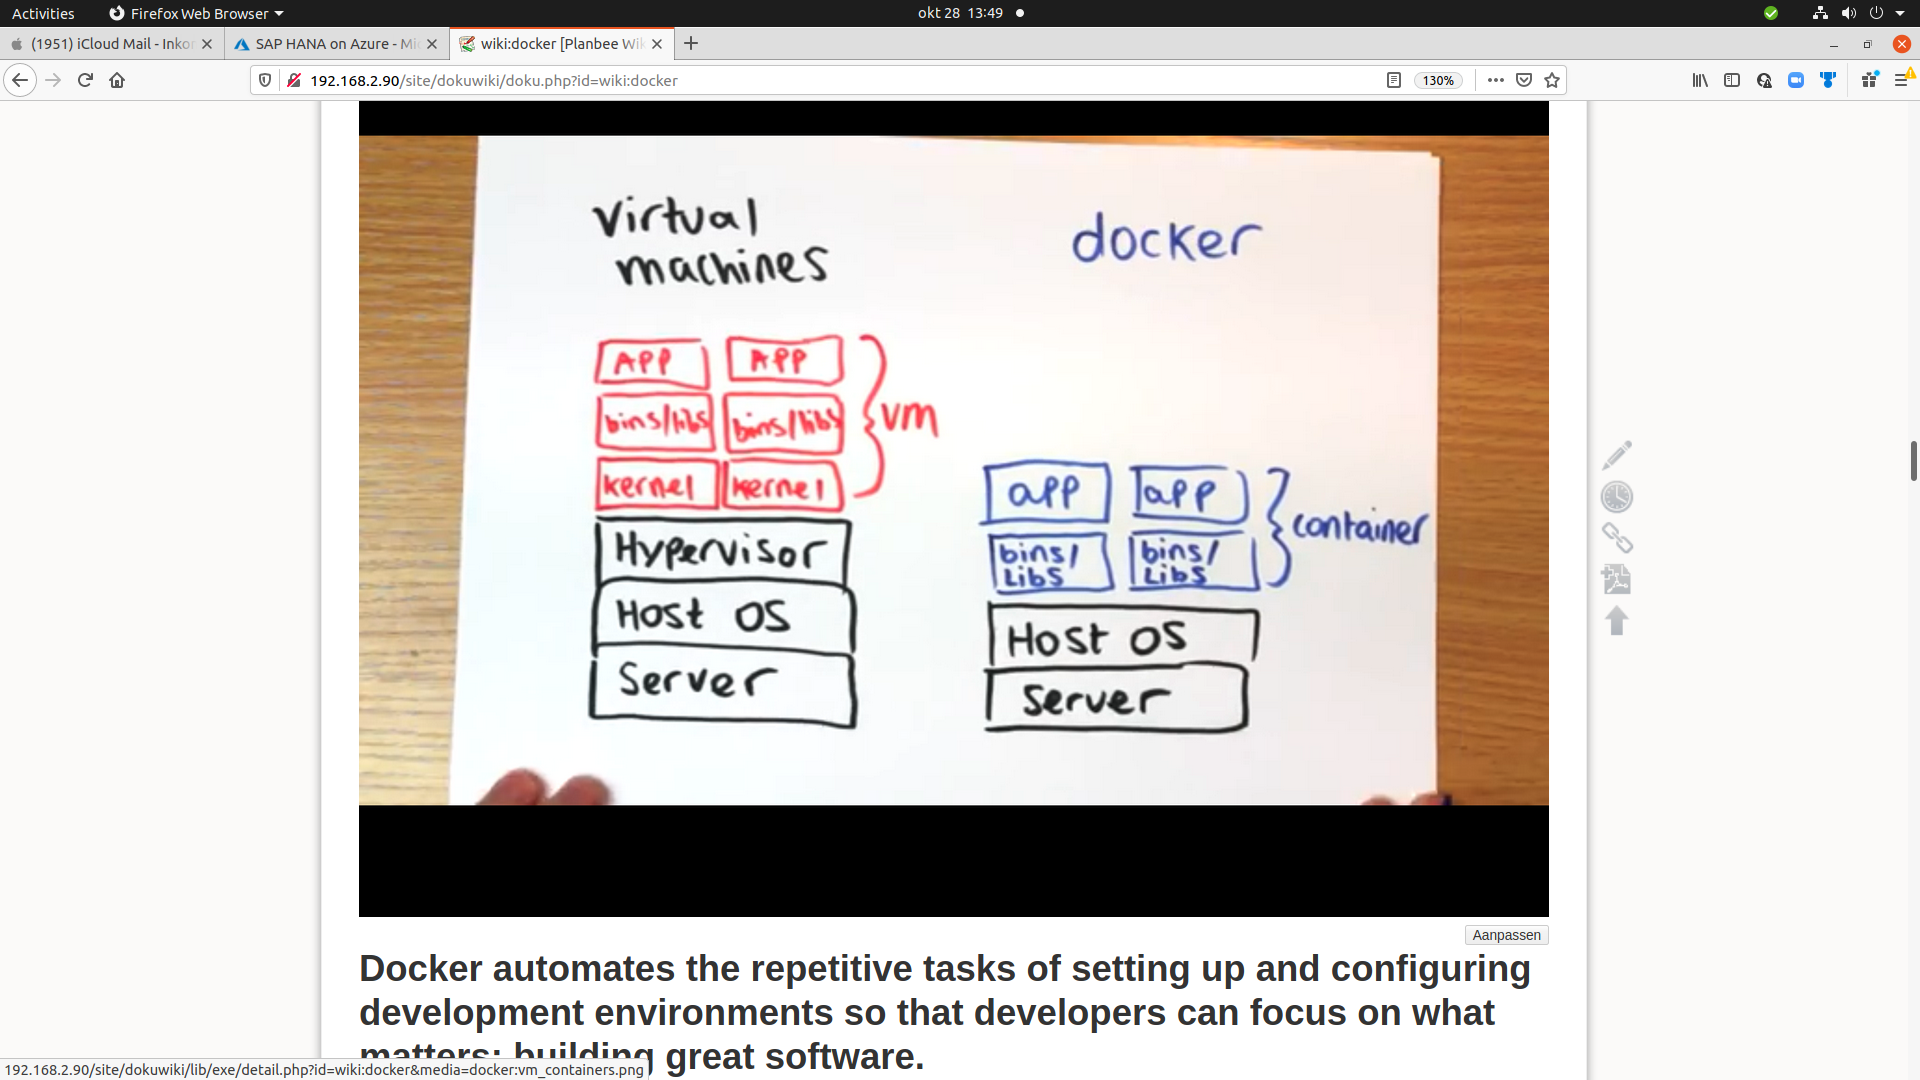 Activities
Firefox Web Browser
okt 28 13:49
(1951) iCloud Mail - Inkor
SAP HANA on Azure - Mi
wiki:docker [Planbee Wik
192.168.2.90/site/dokuwiki/doku.php?id=wiki:docker
130%
virtual
machines
docker
APP APP
bins/libs bins/libs
kernel kernel
VM
Hypervisor
Host OS
Server
app app
bins/ bins/
Libs Libs
container
Host OS
Server
Aanpassen
Docker automates the repetitive tasks of setting up and configuring
development environments so that developers can focus on what
matters: building great software.
192.168.2.90/site/dokuwiki/lib/exe/detail.php?id=wiki:docker&media=docker:vm_containers.png